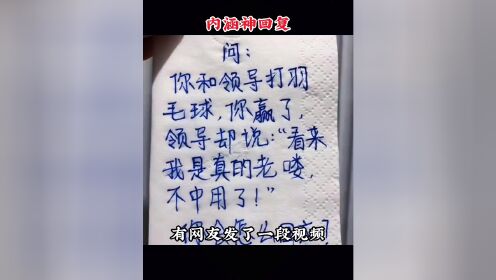 内涵神回复
问:
你和领导打羽
毛球,你赢了,
领导却说:“看来
我是真的老喽,
不中用了!”
有网友发了一段视频